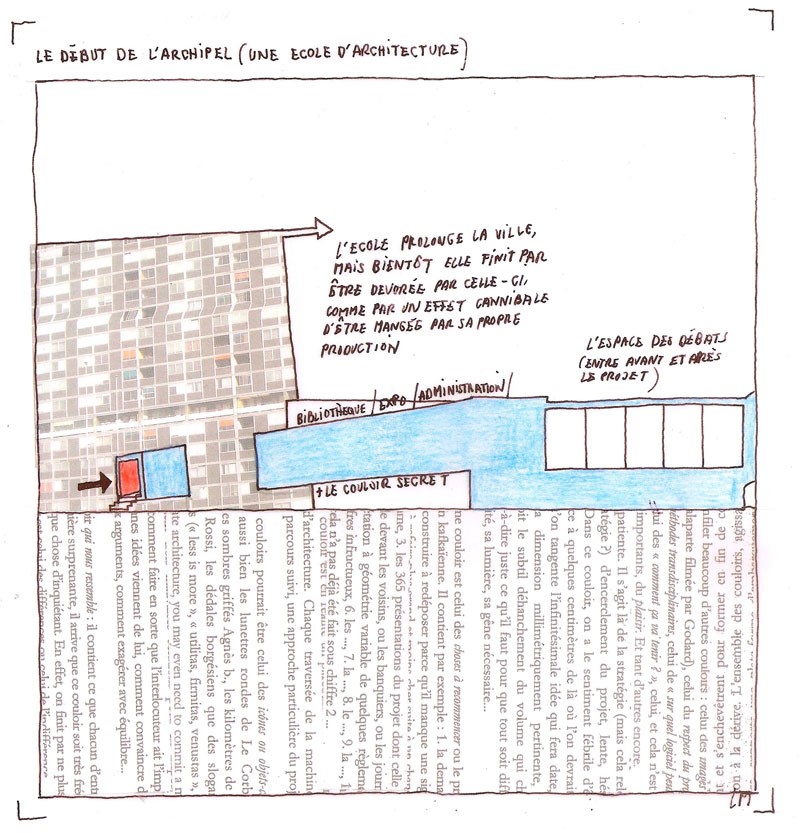 LE DÉBUT DE L'ARCHIPEL (UNE ECOLE D'ARCHITECTURE)
L'ECOLE PROLONGE LA VILLE,
MAIS BIENTÔT ELLE FINIT PAR
ÊTRE DEVORÉE PAR CELLE-CI,
COMME PAR UN EFFET CANNIBALE
D'ÊTRE MANGÉE PAR SA PROPRE
PRODUCTION
L'ESPACE DES DÉBATS
(ENTRE AVANT ET APRÈS
LE PROJET)
BIBLIOTHÈQUE / EXPO / ADMINISTRATION /
+ LE COULOIR SECRET
on à la dérive. L'ensemble des couloirs, agiss
it et s'enchevêtrent pour former un
nfiler beaucoup d'autres couloirs : celui des images
alaparte filmée par Godard), celui du respect du pro
éthodes transdisciplinaires, celui de « sur quel logiciel pour
lui des « comment ça va tenir ? », celui, et cela n'est
importants, du plaisir. Et tant d'autres encore.
patiente. Il s'agit là de la stratégie (mais cela rele
atégie ?) d'encerclement du projet, lente, hés
Dans ce couloir, on a le sentiment fébrile d'ê
ce à quelques centimètres de là où l'on devrai
'on tangente l'infinitésimale idée qui fera date,
a dimension millimétriquement pertinente,
it le subtil déhanchement du volume qui ch
-à-dire juste ce qu'il faut pour que tout soit diff
té, sa lumière, sa gêne nécessaire...
ne couloir est celui des choses à recommencer ou le pr
n kafkaïenne. Il contient par exemple : 1. la dema
construire à redéposer parce qu'il manque une sig
ime, 3. les 365 présentations du projet dont celle
le devant les voisins, ou les banquiers, ou les jourr
tation à géométrie variable de quelques règleme
fres infructueux, 6. les ..., 7. la ..., 8. le ..., 9. la ..., 1
ela n'a pas déjà été fait sous chiffre 2 ...
d'architecture. Chaque traversée de la machine
parcours suivi, une approche particulière du proj
couloirs pourrait être celui des icônes ou objets-c
aussi bien les lunettes rondes de Le Corb
es sombres griffés Agnès b., les kilomètres de
Rossi, les dédales borgésiens que des sloga
s (« less is more », « utilitas, firmitas, venustas »,
ate architecture, you may even need to commit a m
comment faire en sorte que l'interlocuteur ait l'imp
nes idées viennent de lui, comment convaincre d
arguments, comment exagérer avec équilibre...
ir qui nous ressemble : il contient ce que chacun d'entr
ière surprenante, il arrive que ce couloir soit très fré
que chose d'inquiétant. En effet, on finit par ne plus
celui des différences ou celui de l'indifférence
LM